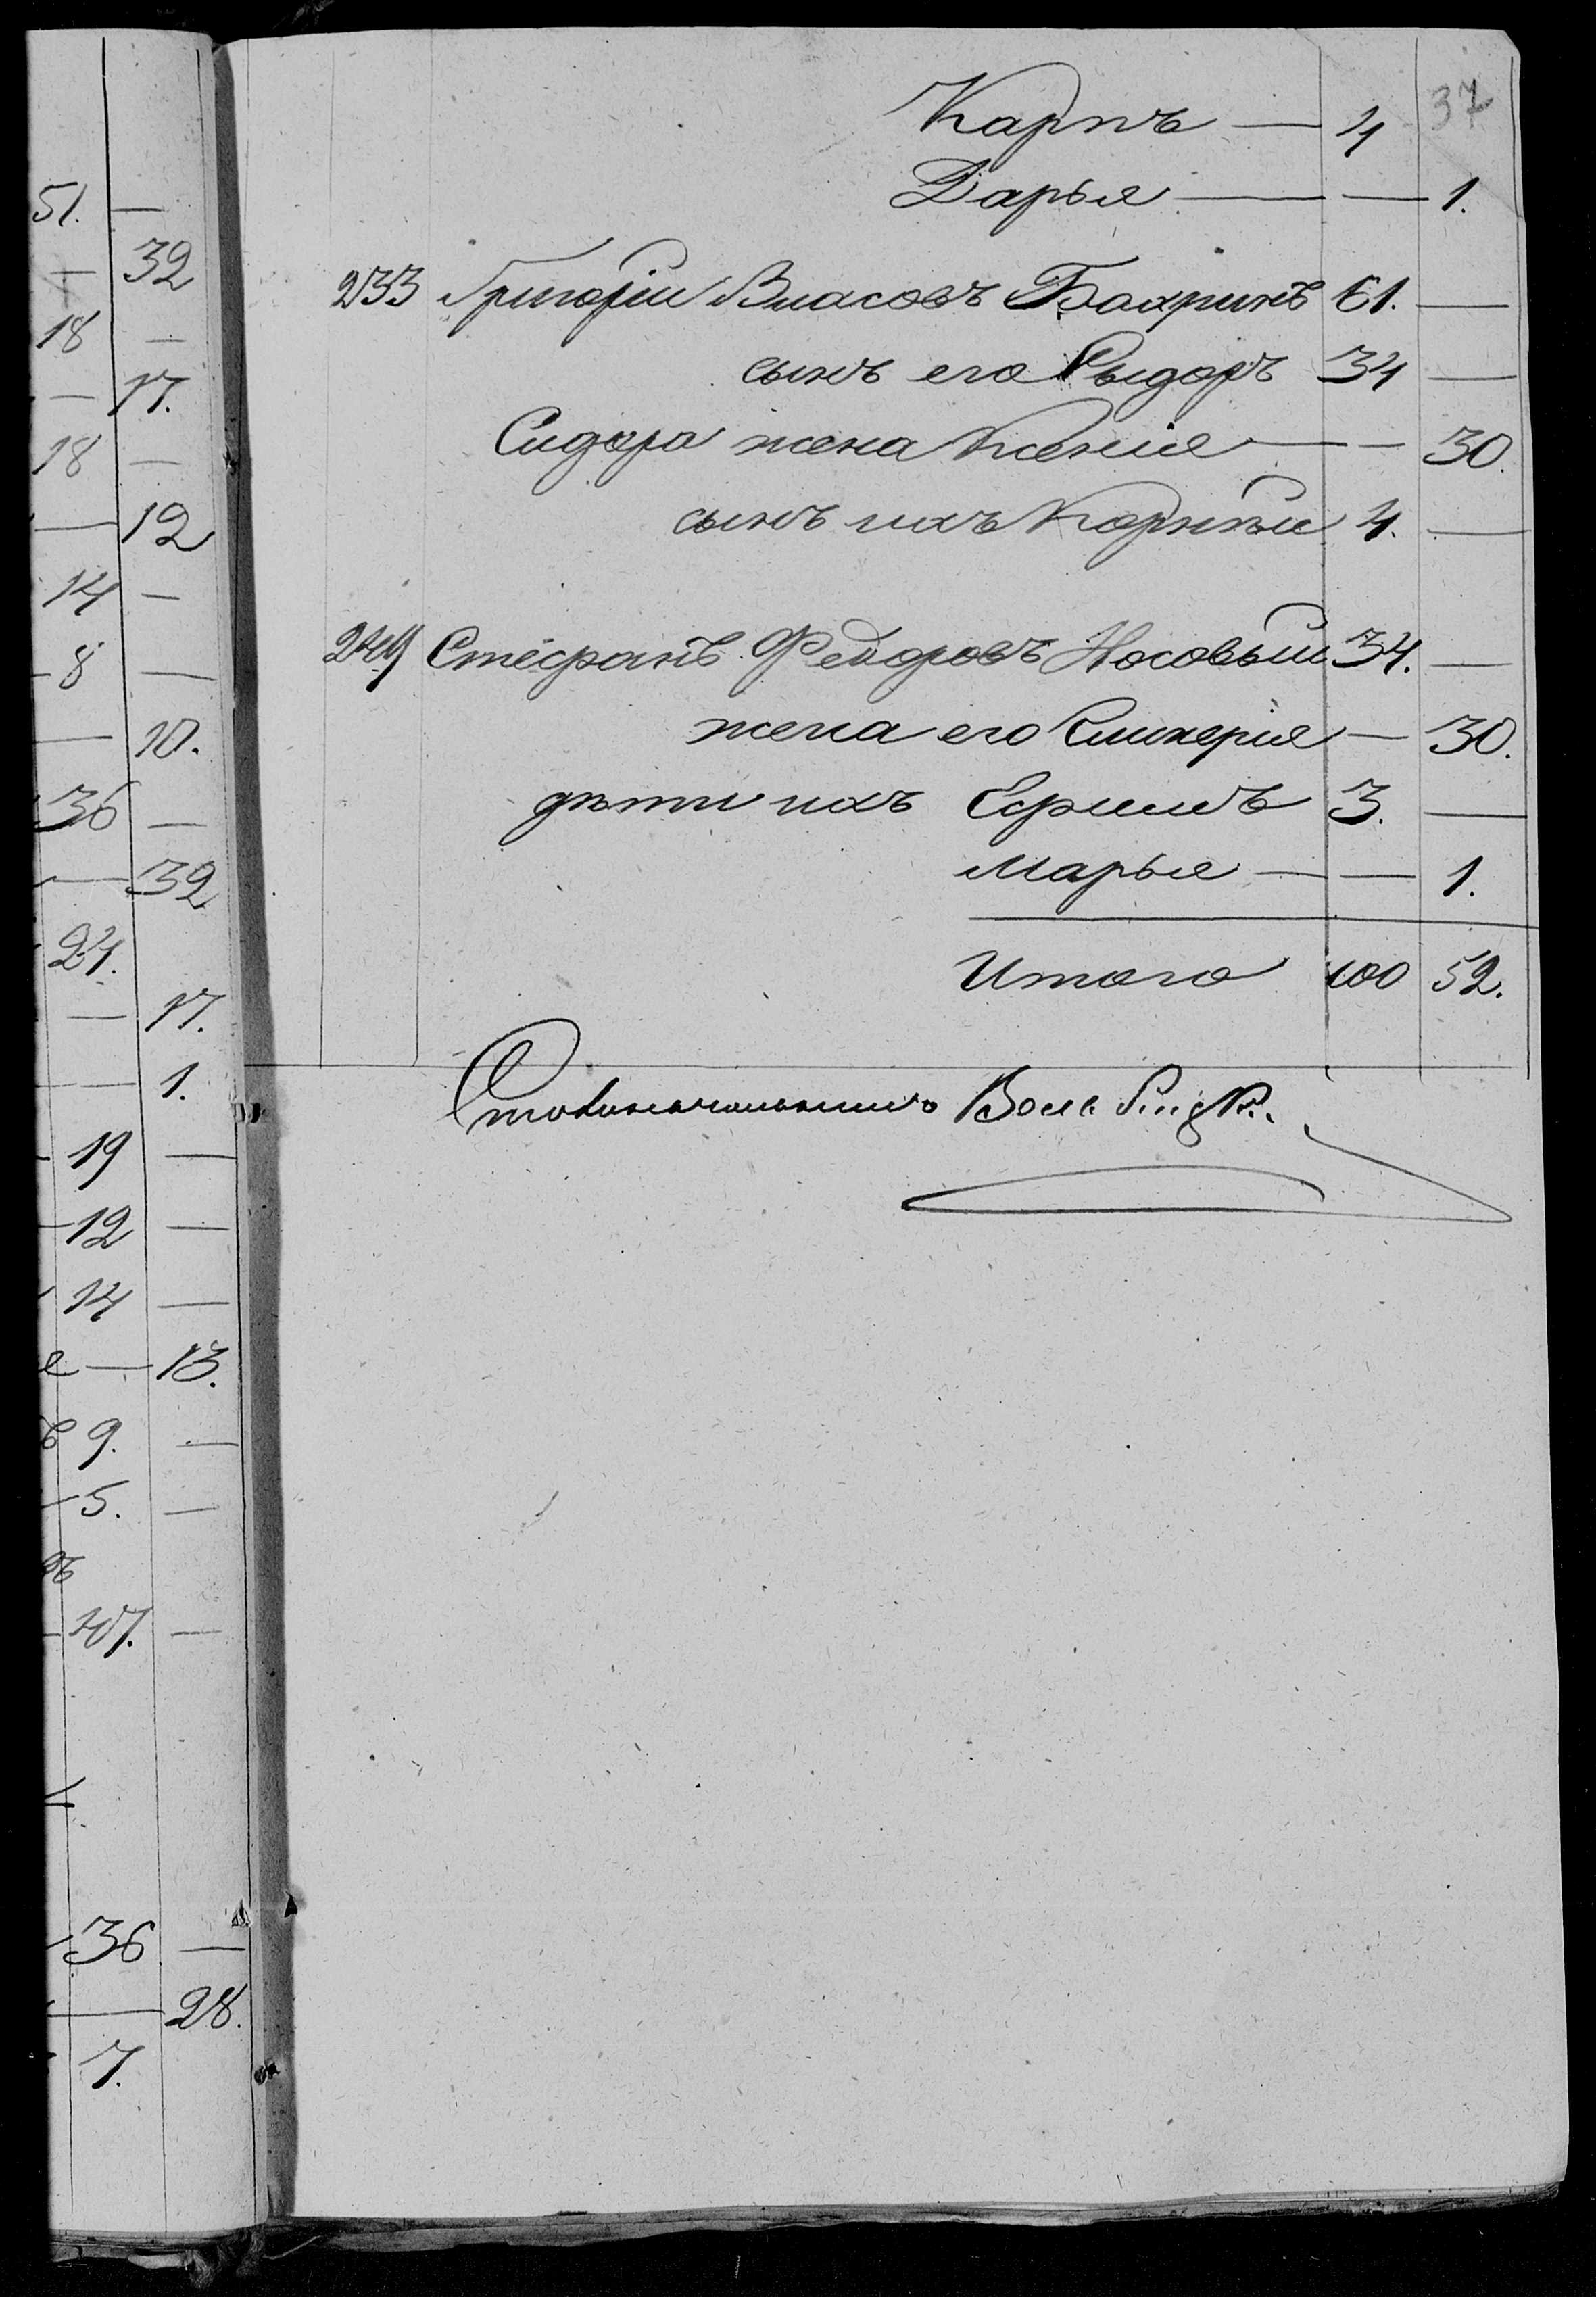 51. —
— 32
18 —
— 17.
18 —
— 12
14 —
8 —
— 10.
36 —
— 32
24.
— 17.
— 1.
19 —
12 —
14 —
е — 13.
ъ 9. —
5. —
47. —
36 —
— 28.
7.
37
Карпъ — 4
Дарья — — 1.
233 Григорій Власовъ Бахринъ 61. —
сынъ его Сыдоръ 34 —
Сидора жена Ксенія — — 30.
сынъ ихъ Корнѣй 4. —
249 Стефанъ Федоровъ Носовый 34. —
жена его Гликерія — 30.
дѣти ихъ Ефимъ 3. —
Марья — — 1.
Итого 100 52.
Столоначальникъ